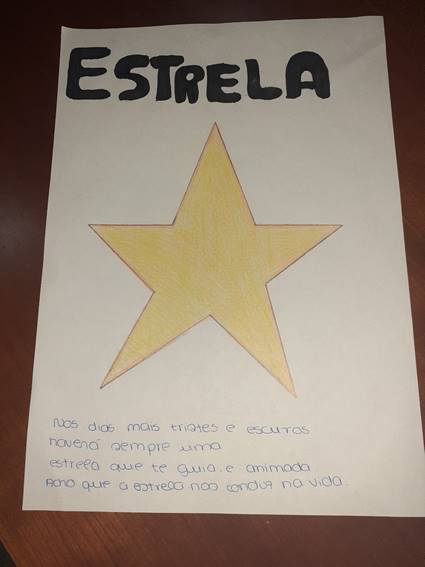 ESTRELA
Nos dias mais tristes e escuros
haverá sempre uma
estrela que te guia e animada
Acho que a estrela nos conduz na vida.